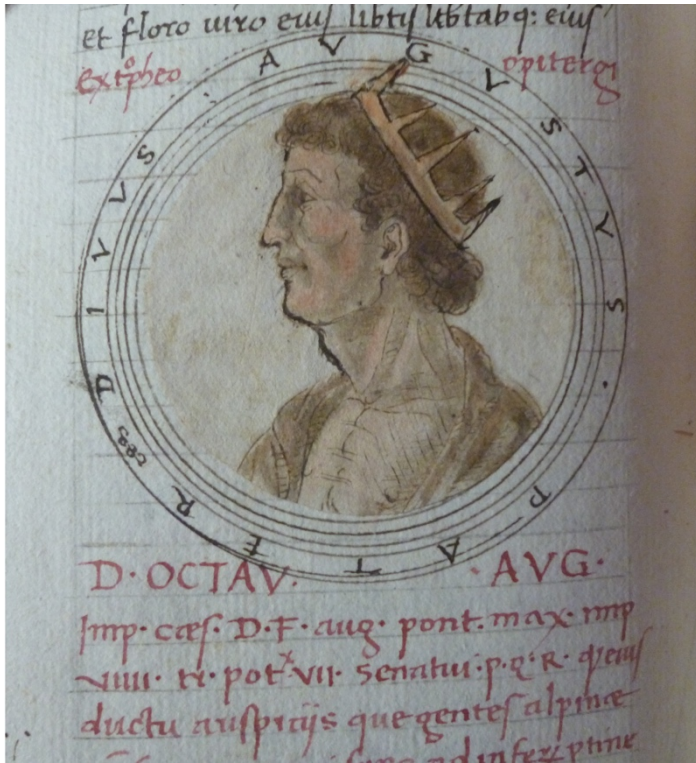 et floro uiro eius libtis libtabq: eius
ex tropheo opitergi
ces DIVVS AVGVSTVS · PATER
D · OCTAV · · AVG ·
Imp · cæs · D · F · aug · pont · max · imp
VIIII · tr · pot · VII · Senatui · p · q · R · q eius
ductu auspicijs que gentes alpinæ